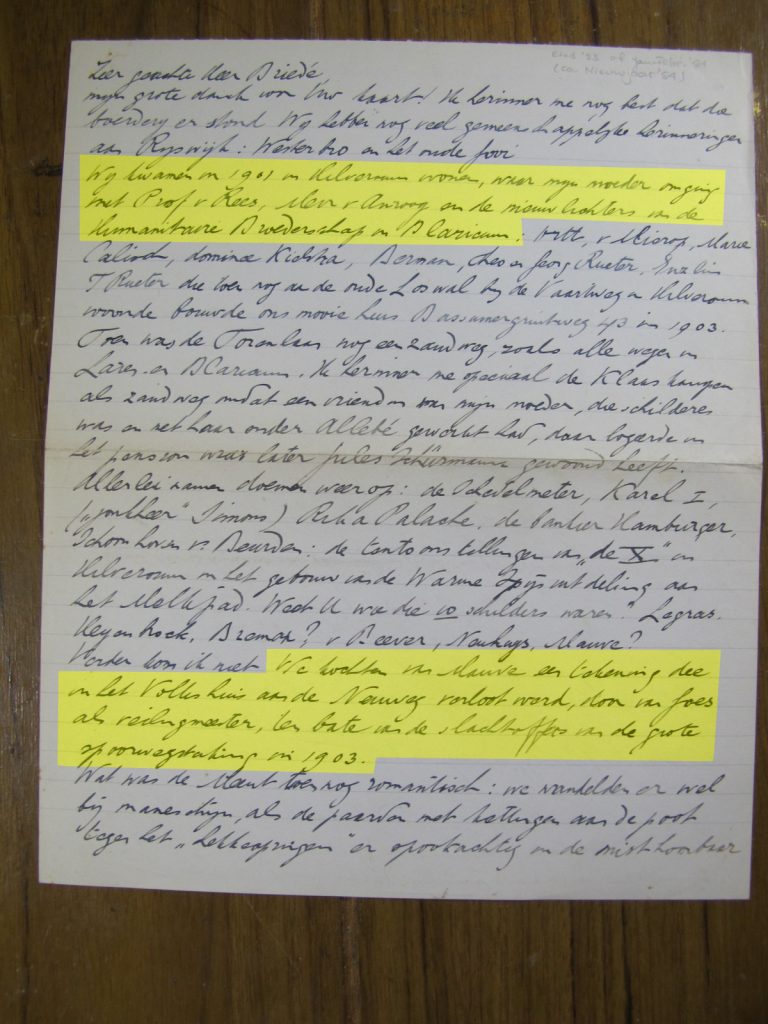 Eind '53 of januari '54
(ca Nieuwjaar '54)
Zeer geachte Heer Briedé,
mijn grote dank voor Uw kaart! Ik herinner me nog best dat die
boerderij er stond Wij hebben nog veel gemeenschappelijke herinneringen
aan Ryswijk: Westerbro en het oude
Wij kwamen in 1901 in Hilversum wonen, waar mijn moeder omging
met Prof v Rees, Mevr v Anrooy en de nieuwlichters van de
Humanitaire Broederschap in Blaricum: Ortt, v Mierop, Marie
Calisch, dominee Kielstra, Berman, Theo en Georg Rueter,
T Rueter die toen nog aan de oude Loswal bij de Vaartweg in Hilversum
woonde bouwde ons mooie huis Bussumergrintweg 43 in 1903.
Toen was de Torenlaan nog een zandweg, zoals alle wegen in
Laren en Blaricum. Ik herinner me speciaal de Klaaskampen
als zandweg omdat een vriendin van mijn moeder, die schilderes
was en met haar onder Allebé gewerkt had, daar logeerde in
het pension waar later Jules Schürmann gewoond heeft.
Allerlei namen doemen weer op: de Schedelmeter, Karel I,
("jonkheer" Simons) Palache, de bankier Hamburger,
Schoonhoven v. Beurden: de tentoonstellingen van "de X" in
Hilversum in het gebouw van de Warme Spijsuitdeling aan
het Melkpad. Weet U wie die 10 schilders waren? Legras.
Heyenbrock, Bremer? v Beever, Neuhuys, Mauve?
Verder kom ik niet We kochten van Mauve een tekening die
in het Volkshuis aan de Neuweg verloot werd, door van Goes
als veilingmeester, ten bate van de slachtoffers van de grote
spoorwegstaking in 1903.
Wat was de Meent toen nog romantisch: we wandelden er wel
bij maneschijn, als de paarden met kettingen aan de poot
tegen het "hekkespringen" er spookachtig in de mist hoorbaar